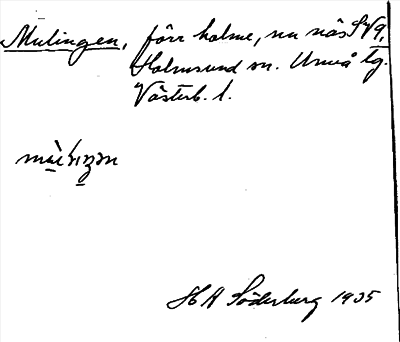 Mulingen, förr holme, nu näs
Holmsund sn. Umeå tg.
Västerb. l.
H A Söderburg 1935